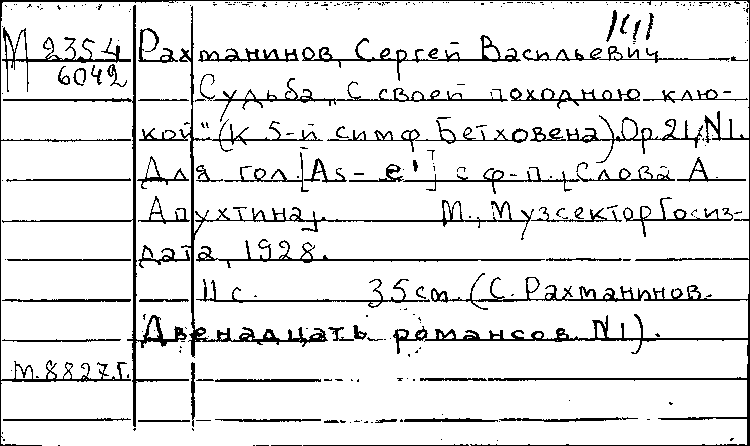 141
М 2354 Рахманинов, Сергей Васильевич.
6042 Судьба „С своей походною клю-
кой" (К 5-й симф. Бетховена). Op. 21, N1.
Для гол. [As - e'] с ф-п. [Слова А.
Апухтина].  М., Музсектор Госиз-
дата, 1928.
11 с.  35 см. (С. Рахманинов.
Двенадцать романсов N1).
т.8827.г.